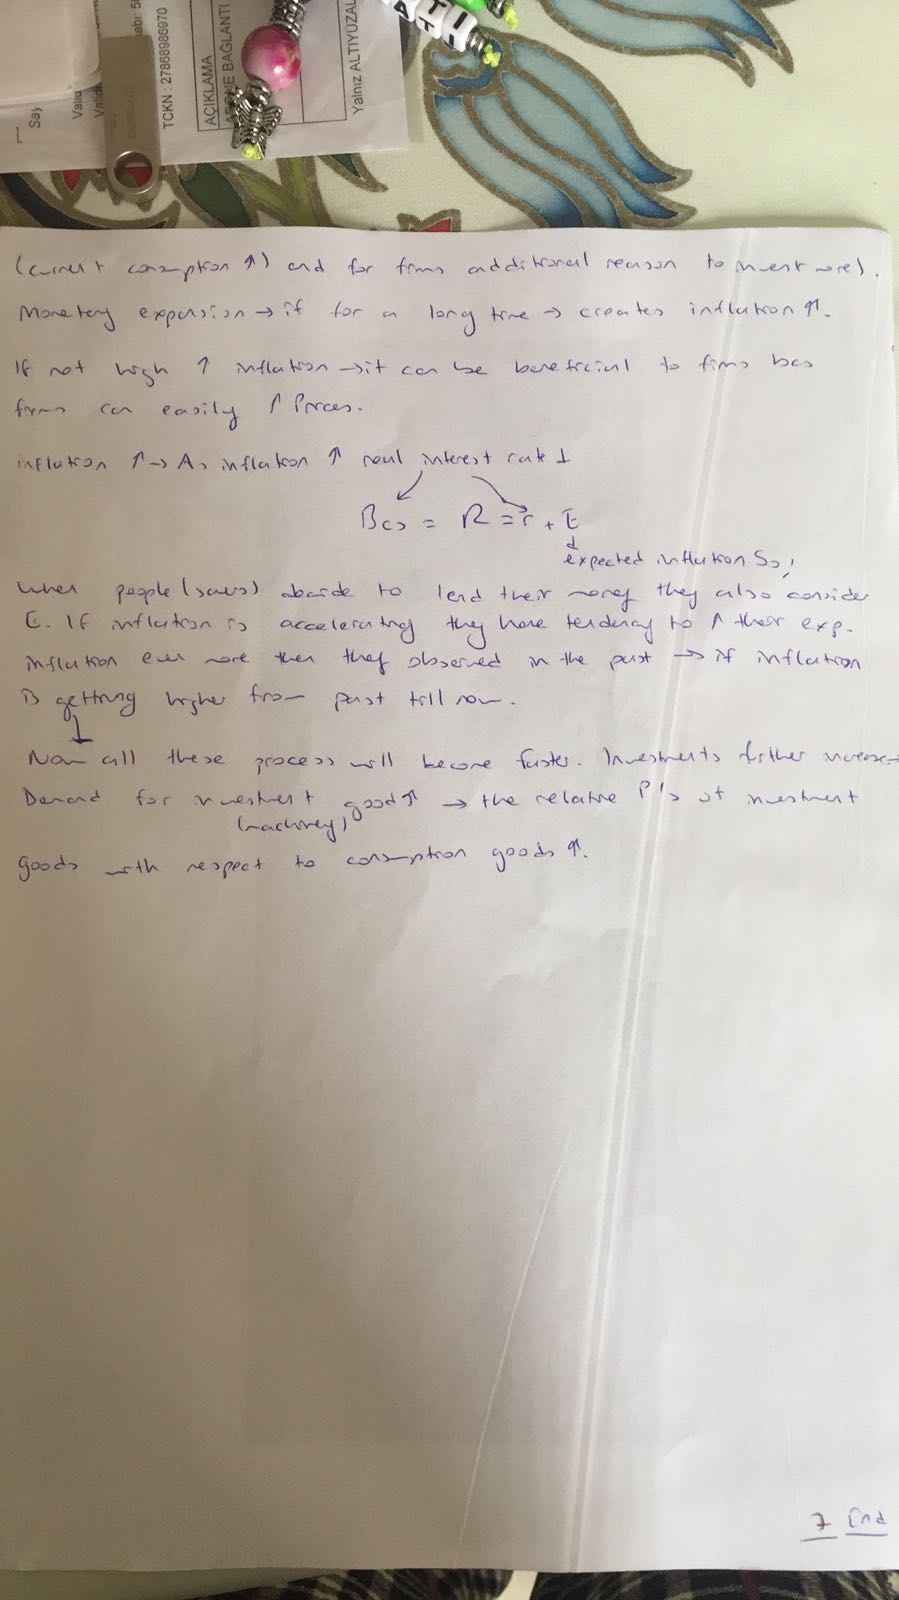 Say
Valid
TCKN : 27868986970
AÇIKLAMA
BAĞLANTI
Yalnız ALTIYÜZAL
(current consumption ↑) and for firms additional reason to invest more).
Monetary expansion → if for a long time → creates inflation ↑.
If not high ↑ inflation → it can be beneficial to firms bcs
firms can easily ↑ Prices.
inflation ↑ → As inflation ↑ real interest rate ↓
Bcs = R = r + E
expected inflation So,
When people (savers) decide to lend their money they also consider
E. If inflation is accelerating they have tendency to ↑ their exp.
inflation even more then they observed in the past → if inflation
is getting higher from past till now.
Now all these process will become faster. Investments further increase
Demand for investment good ↑ → the relative P's of investment
(machinery)
goods with respect to consumption goods ↑.
7 End